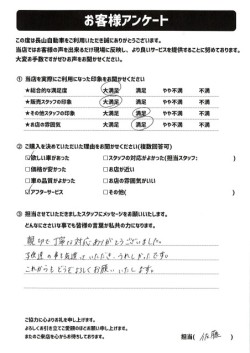 お客様アンケート
この度は長山自動車をご利用いただき誠にありがとうございます。
当店ではお客様の声を出来るだけ現場に反映し、より良いサービスを提供することに努めております。
大変お手数ですがぜひお声をお聞かせください。
① 当店を実際にご利用になった印象をお聞かせください
★総合的な満足度 大満足 満足 やや不満 不満
★販売スタッフの印象 大満足 満足 やや不満 不満
★その他スタッフの印象 大満足 満足 やや不満 不満
★お店の雰囲気 大満足 満足 やや不満 不満
② ご購入を決めていただいた理由をお聞かせください(複数回答可)
☑欲しい車があった □スタッフの対応がよかった(担当スタッフ: )
□価格が安かった □お店が近い
□車の品質がよかった □お店の雰囲気がいい
☑アフターサービス □その他( )
③ 担当させていただきましたスタッフにメッセージをお願いいたします。
どんなにささいな事でも皆様の言葉が私共の力になります。
親切丁寧な対応ありがとうございました。
子供達の事も気遣っていただき、うれしかったです。
これからもどうぞよろしくお願いいたします。
ご協力に心よりお礼を申し上げます。
よろしくお引を立てご愛顧のほどお願い申し上げます。
またのご来店を心からお待ちしております。
担当( 佐藤 )